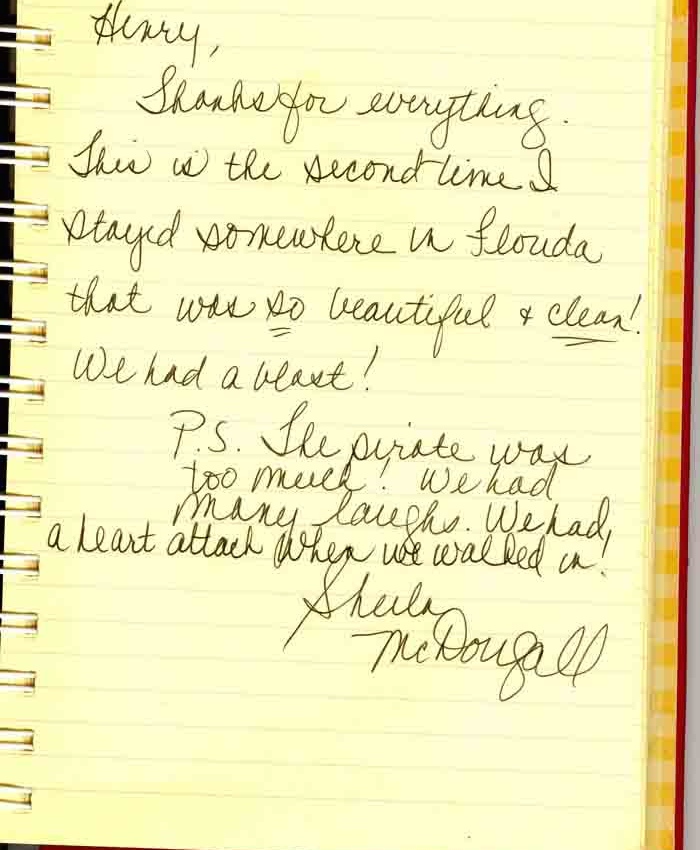 Henry,
Thanks for everything.
This is the second time I
stayed somewhere in Florida
that was so beautiful & clean!
We had a blast!
P.S. The pirate was
too much! We had
many laughs. We had
a heart attack when we walked in!
Sheila
McDougall